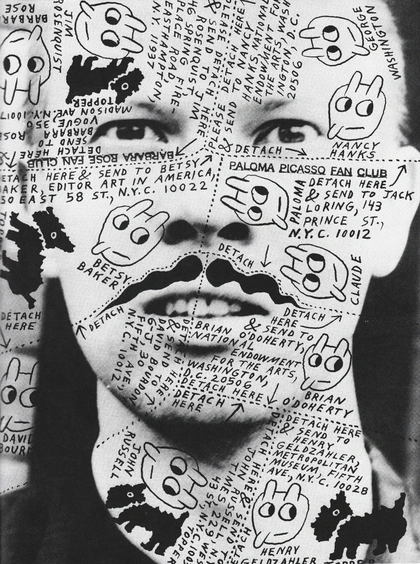 BARBARA
ROSE
JIM
ROSENQUIST
TOPPER
DETACH HERE
& SEND TO JIM
ROSENQUIST
SPRINGS FIRE
PLACE ROAD,
EASTHAMPTON,
N.Y. 11937
DETACH HERE
& SEND
TO NANCY
HANKS,
NATIONAL
ENDOWMENT
FOR THE
ARTS, WASH
INGTON, D.C.
20506
GEORGE
WASHINGTON
NANCY
HANKS
DETACH
DETACH HERE &
SEND TO
BARBARA ROSE
VOGUE, 350
MADISON AV, N.Y.C. 10017
BARBARA ROSE FAN CLUB
DETACH HERE & SEND TO BETSY
BAKER, EDITOR ART IN AMERICA,
150 EAST 58 ST., N.Y.C. 10022
PALOMA PICASSO FAN CLUB
DETACH HERE
& SEND TO JACK
LORING, 143
PRINCE ST.,
N.Y.C. 10012
PALOMA
BETSY
BAKER
CLAUDE
DETACH
DETACH
HERE
DETACH
DETACH
HERE
& SEND TO
BRIAN O'DOHERTY,
NATIONAL
ENDOWMENT
FOR THE ARTS,
WASHINGTON,
D.C. 20506
DETACH HERE
DETACH
HERE
DETACH HERE
& SEND TO
DAVID BOURDON
FIFTH AVE.
N.Y.C. 10011
BRIAN
O'DOHERTY
DAVID
BOURDON
DETACH HERE
& SEND TO
HENRY
GELDZAHLER,
METROPOLITAN
MUSEUM, FIFTH
AVE, N.Y.C. 10028
JOHN
RUSSELL
DETACH HERE &
SEND TO
JOHN RUSSELL
TIMES, 229 WEST
43 ST. N.Y.C.
TOPPER
HENRY
GELDZAHLER
TOPPER